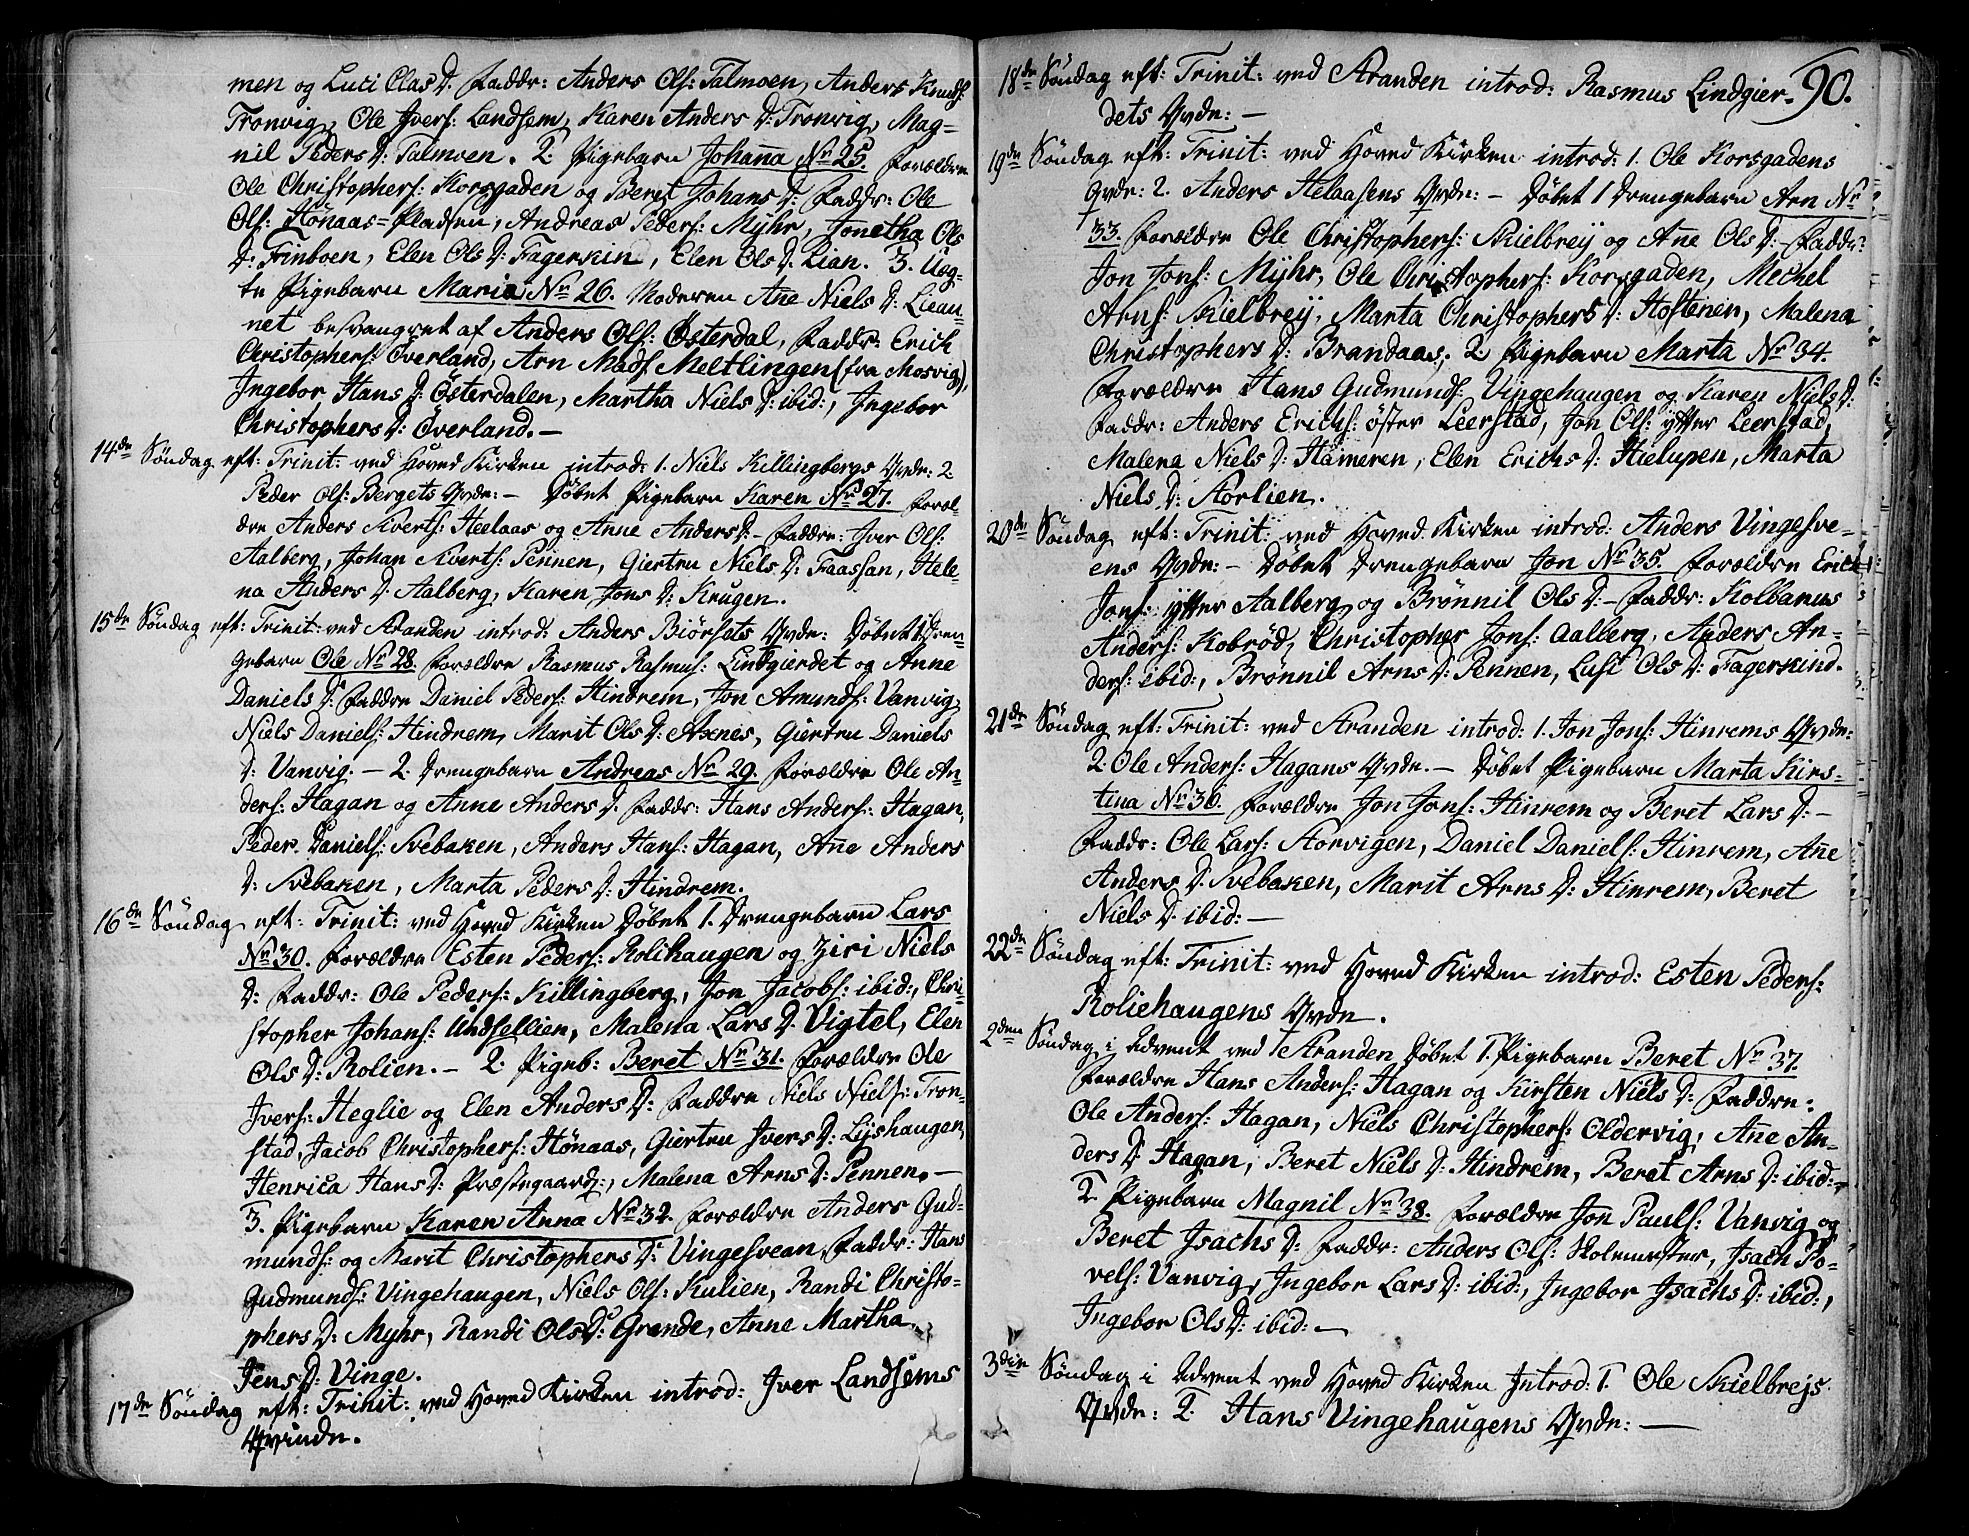 men og Luci Clas D. Faddr: Anders Ols: Talmoen, Anders Knuds:
Tronvig, Ole Jvers: Landsem, Karen Anders D: Tronvig, Mag=
nil Peders D: Talmoen. 2. Pigebarn Johan̄a No 25. Forældre
Ole Christophers: Korsgaden og Beret Johans D: Faddr: Ole
Ols: Hönaas=Pladsen, Andreas Peders: Myhr, Jonetha Ols
D: Finboen, Elen Ols D: Fagerskin, Elen Ols D: Lian. 3. Uæg-
te Pigebarn Maria No 26. Moderen An̄e Niels D: Lieau-
net besvangret af Anders Ols: Österdal, Faddr: Erich
Christophers: Överland, Arn Mads Meltlingen (fra Mosvig),
Jngebor Hans D: Österdalen, Martha Niels D: ibid:, Jngebor
Christophers D: Överland. —
14de Söndag eft: Trinit: ved Hoved Kirken introd: 1. Niels Killingbergs Qvde: 2
Peder Ols: Bergets Qvde: — Döbet Pigebarn Karen No 27. Foræl-
dre Anders Sverts: Heelaas og Anne Anders D: - Faddre: Jver Ols:
Aalberg, Johan Sverts: Pennen, Giertru Niels D: Faassan, Hele-
na Anders D: Aalberg, Karen Jons D: Krugen.
15de Söndag eft: Trinit: ved Stranden introd: Anders Biörsets Qvde: Döbet 1 Dren-
gebarn Ole No 28. Forældre Rasmus Rasmus: Lindgierdet og Anne
Daniels D: Faddre Daniel Peders: Hindrem, Jon Amunds: Vanvig,
Niels Daniels: Hindrem, Marit Ols D: Axnes, Giertru Daniels
D: Vanvig. — 2. Drengebarn Andreas No 29. Forældre Ole An-
ders: Hagan og Anne Anders D. Faddr: Hans Anders: Hagan,
Peder Daniels: Svebaken, Anders Hans: Hagan, An̄e Anders
D: Svebaken, Marta Peders D: Hindrem.
16de Söndag eft: Trinit: ved Hoved Kirken Döbet 1. Drengebarn Lars
No 30. Forældre Esten Peders: Rolihaugen og Ziri Niels
D: Faddr: Ole Peders: Killingberg, Jon Jacobs: ibid:, Chri-
stopher Johans: Undsellien, Malena Lars D. Vigtel, Elen
Ols D: Rolien. — 2. Pigeb: Beret No 31. Forældre Ole
Jvers: Heglie og Elen Anders D: Faddre Niels Niels: Tron-
stad, Jacob Christophers: Hönaas, Giertru Jvers D: Lijshaugen,
Henrica Hans D: Præstegaard:, Malena Arns D: Pennen. —
3. Pigebarn Karen Anna No 32. Forældre Anders Gud-
munds: og Marit Christophers D: Vingesvean, Faddr: Hans
Gudmunds: Vingehaugen, Niels Ols: Kulien, Randi Christo-
phers D: Myhr, Randi Ols D: Grande, Anne Martha
Jens D: Vinge.
17de Söndag eft: Trinit: ved Hoved Kirken introd: Jver Landsems
Qvinde.
90.
18de Söndag eft: Trinit: ved Stranden introd: Rasmus Lindgier-
dets Qvde: —
19de Söndag eft: Trinit: ved Hoved Kirken introd: 1. Ole Korsgadens
Qvde: 2. Anders Helaasens Qvde: — Döbet 1 Drengebarn Arn No
33. Forældre Ole Christophers: Skielbreij og An̄e Ols D: - Faddr:
Jon Jons: Myhr, Ole Christophers: Korsgaden, Mechel
Arns: Skielbreij, Marta Christophers D: Hostenen, Malena
Christophers D: Brandaas; 2. Pigebarn Marta No 34.
Forældre Hans Gudmunds: Vingehaugen og Karen Niels D:
Faddr: Anders Erichs: öster Leerstad, Jon Ols: ytter Leerstad,
Malena Niels D: Hameren, Elen Erichs D: Hielupen, Marta
Niels D: Storlien.
20de Söndag eft: Trinit: ved Hoved Kirken introd: Anders Vingesve-
ens Qvde: — Döbet Drengebarn Jon No 35. Forældre Erich
Jons: ytter Aalberg og Brönnil Ols D: - Faddr: Kolbanus
Anders: Kobröd, Christopher Jons: Aalberg, Anders An-
ders: ibid:, Brönnil Arns D: Pennen, Lusi Ols D: Fagerskind.
21de Söndag eft: Trinit: ved Stranden introd: 1. Jon Jons: Hinrems Qvde:
2 Ole Anders: Hagans Qvde. — Döbet Pigebarn Marta Kirs-
tina No 36. Forældre Jon Jons: Hinrem og Beret Lars D: —
Faddr: Ole Lars: Storvigen, Daniel Daniels: Hinrem, An̄e
Anders D: Svebaken, Marit Arns D: Hinrem, Beret
Niels D: ibid: —
22de Söndag eft: Trinit: ved Hoved Kirken introd: Esten Peders:
Roliehaugens Qvde.
2den Söndag i Advent ved Stranden Döbet 1. Pigebarn Beret No 37.
Forældre Hans Anders: Hagan og Kirsten Niels D: Faddre:
Ole Anders: Hagan, Niels Christophers: Oldervig, An̄e An-
ders D: Hagan, Beret Niels D: Hindrem, Beret Arns D: ibid: —
2. Pigebarn Magnil No 38. Forældre Jon Pauls: Vanvig og
Beret Jsachs D: Faddr: Anders Ols: Skolemester, Jsach Po-
vels: Vanvig, Jngebor Lars D: ibid:, Jngebor Jsachs D: ibid:,
Jngebor Ols D: ibid: —
3die Söndag i Advent ved Hoved Kirken Jntrod: 1. Ole Skielbrejs
Qvde: 2. Hans Vingehaugens Qvde: —